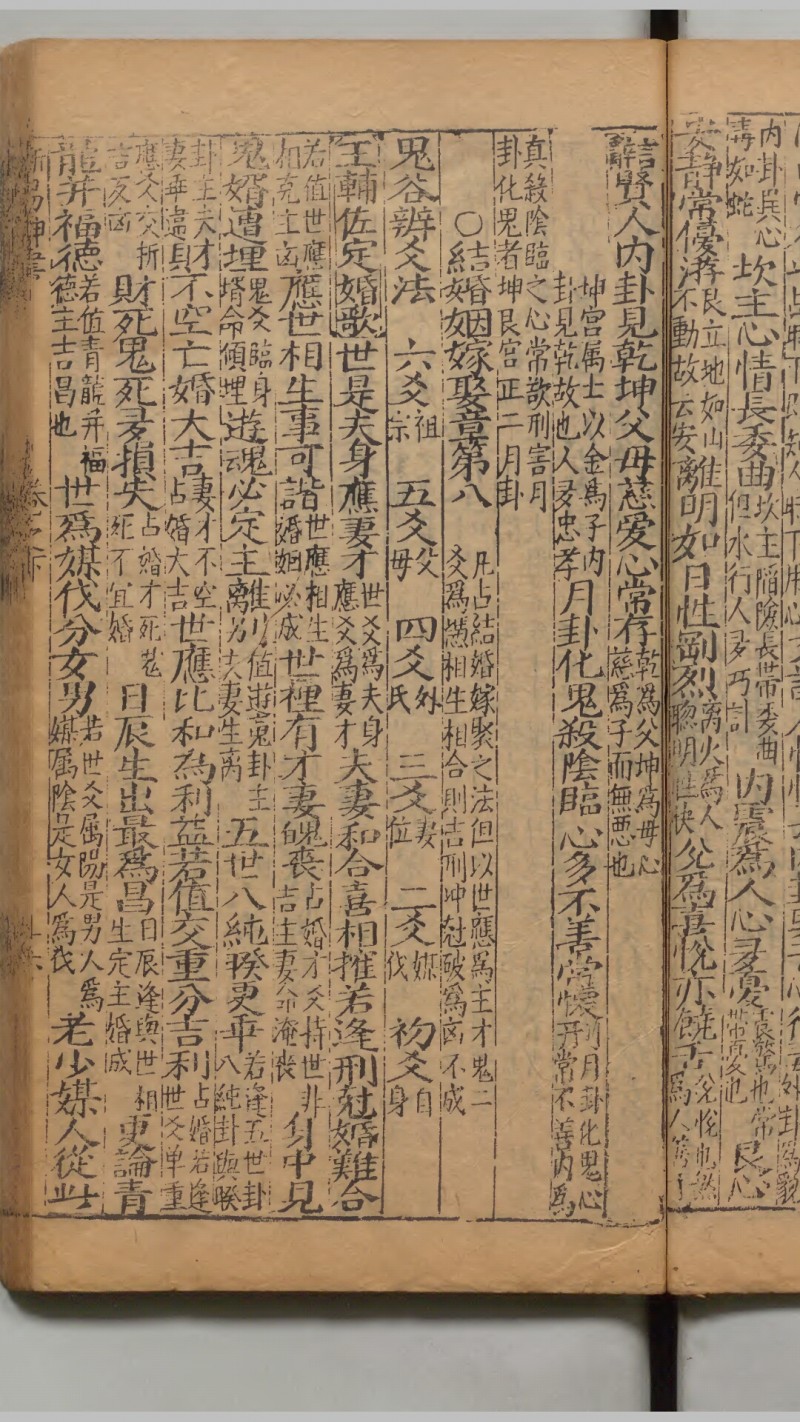 内卦巽心毒如蛇 坎主心情長委曲 坎主陷險長帶委曲但水行人多巧計 内震爲人心多憂 艮心
安靜常優濟 艮立地如山不動故云安 離明如日性剛烈 离火爲人聰明性快 兊爲喜悅亦饒舌
言辭賢人内卦見乾坤父母慈爱心常存 乾為父坤為母心慈爲子而無悪也
坤宮属士以金爲子内卦見乾故也人多忠孝 月卦化鬼殺陰臨心多不善常懐 月卦化鬼心常不善内爲
真殺陰臨之心常欲刑害月卦化鬼者坤艮宮正二月卦
○結婚姻嫁娶章第八 凡占結婚嫁娶之法但以世應爲主才鬼二爻爲憑相生相合則吉刑冲尅破爲凶不成
鬼谷辨爻法 六爻祖宗 五爻父母 四爻外氏 三爻妻位 二爻媒伐 初爻自身
王輔佐定婚歌 世是夫身應妻才 世爻爲夫身應爻爲妻才 夫妻和合喜相摧若逢刑尅婚難合
若值世應相克主凶 應世相生事可諧 世應相生婚姻必成 世裡有才妻魄丧 占婚才爻持世非吉主妻命淹丧 身中見
鬼婿遭埋 鬼爻臨身婿命傾埋 遊魂必定主離别 值遊䰟卦主夫妻生离 五世八純暌更乖 若逢五世卦八純卦與暌
卦主夫才妻乖違 財不空亡婚大吉 妻才不空占婚大吉 世應比和為利益若值交重分吉利 占婚若逢世爻单重
應爻交折言反凶 財死鬼死多損失 占婚才死鬼死不宜婚 日辰生出最爲昌 日辰逢與世相生定主婚成 更論青
龍并福徳 若值青龍并福德主吉昌也 世爲媒伐分女男 若世爻属陽是男人爲媒属陰是女人爲伐 老少媒人從此